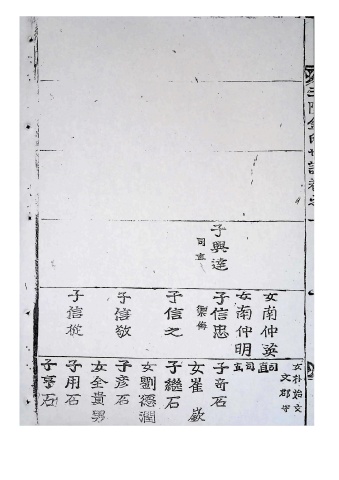 金氏世譜卷之
子興達
司直
女南仲英
司直
女南仲明
司直
子信忠
禦侮
子信之
子信敬
子信
女朴始文
文郡守
子奇石
女崔
子繼石
女劉德潤
子彦石
女金貴男
子用石
子亨石